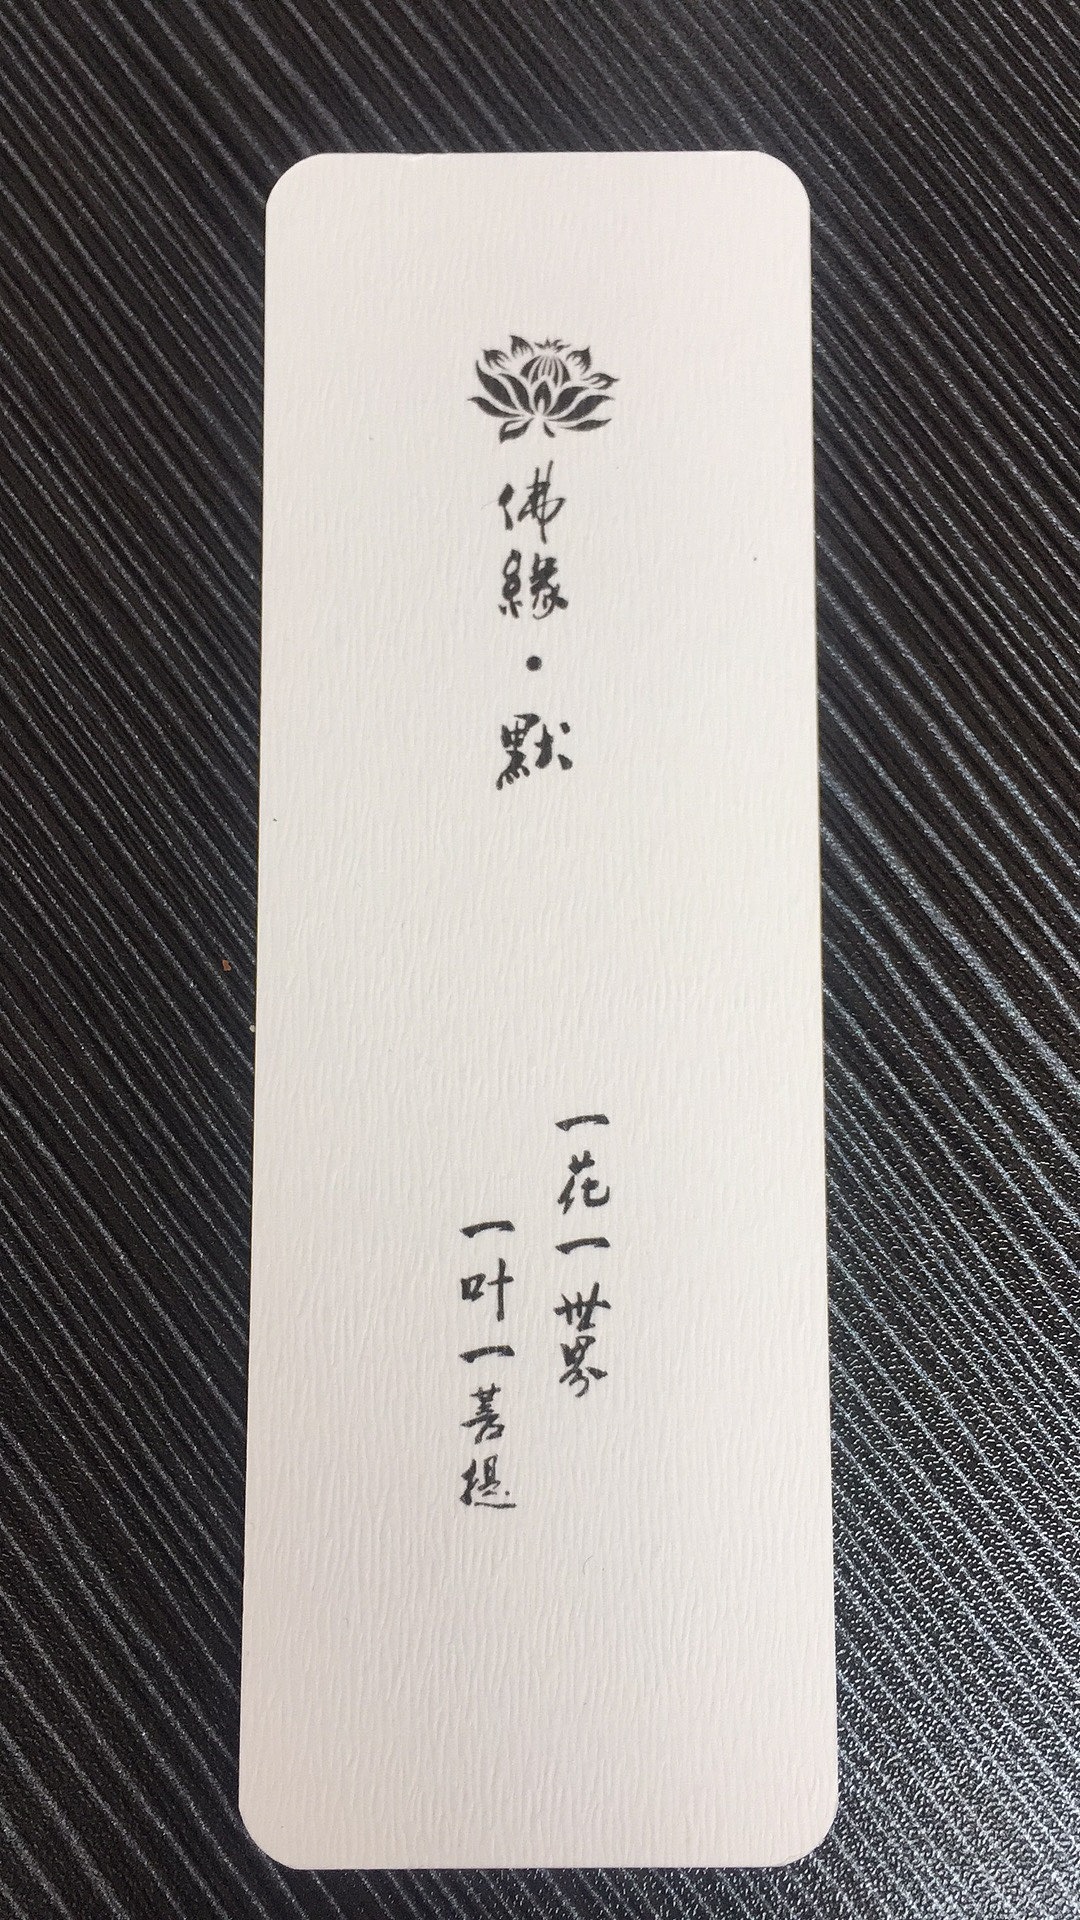 佛緣·默
一花一世界
一叶一菩提